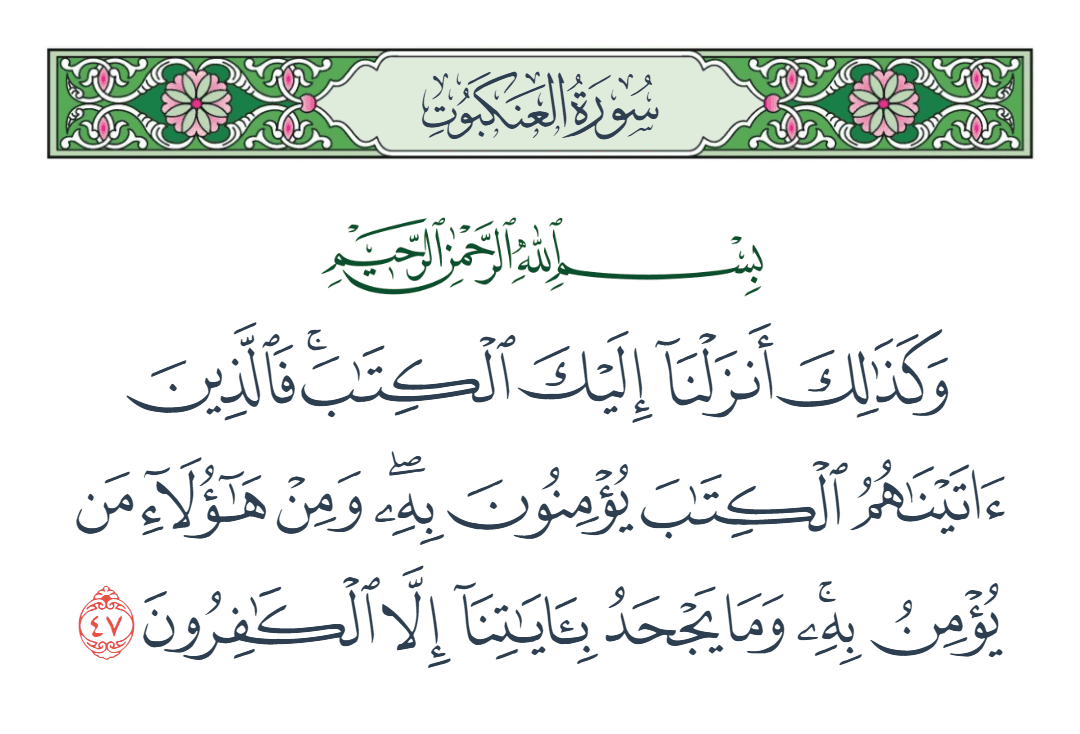 سُورَةُ العَنكَبُوتِ
بِسْمِ ٱللَّهِ ٱلرَّحْمَٰنِ ٱلرَّحِيمِ
وَكَذَٰلِكَ أَنزَلْنَآ إِلَيْكَ ٱلْكِتَٰبَ ۚ فَٱلَّذِينَ
ءَاتَيْنَٰهُمُ ٱلْكِتَٰبَ يُؤْمِنُونَ بِهِۦ ۖ وَمِنْ هَٰٓؤُلَآءِ مَن
يُؤْمِنُ بِهِۦ ۚ وَمَا يَجْحَدُ بِـَٔايَٰتِنَآ إِلَّا ٱلْكَٰفِرُونَ ٤٧